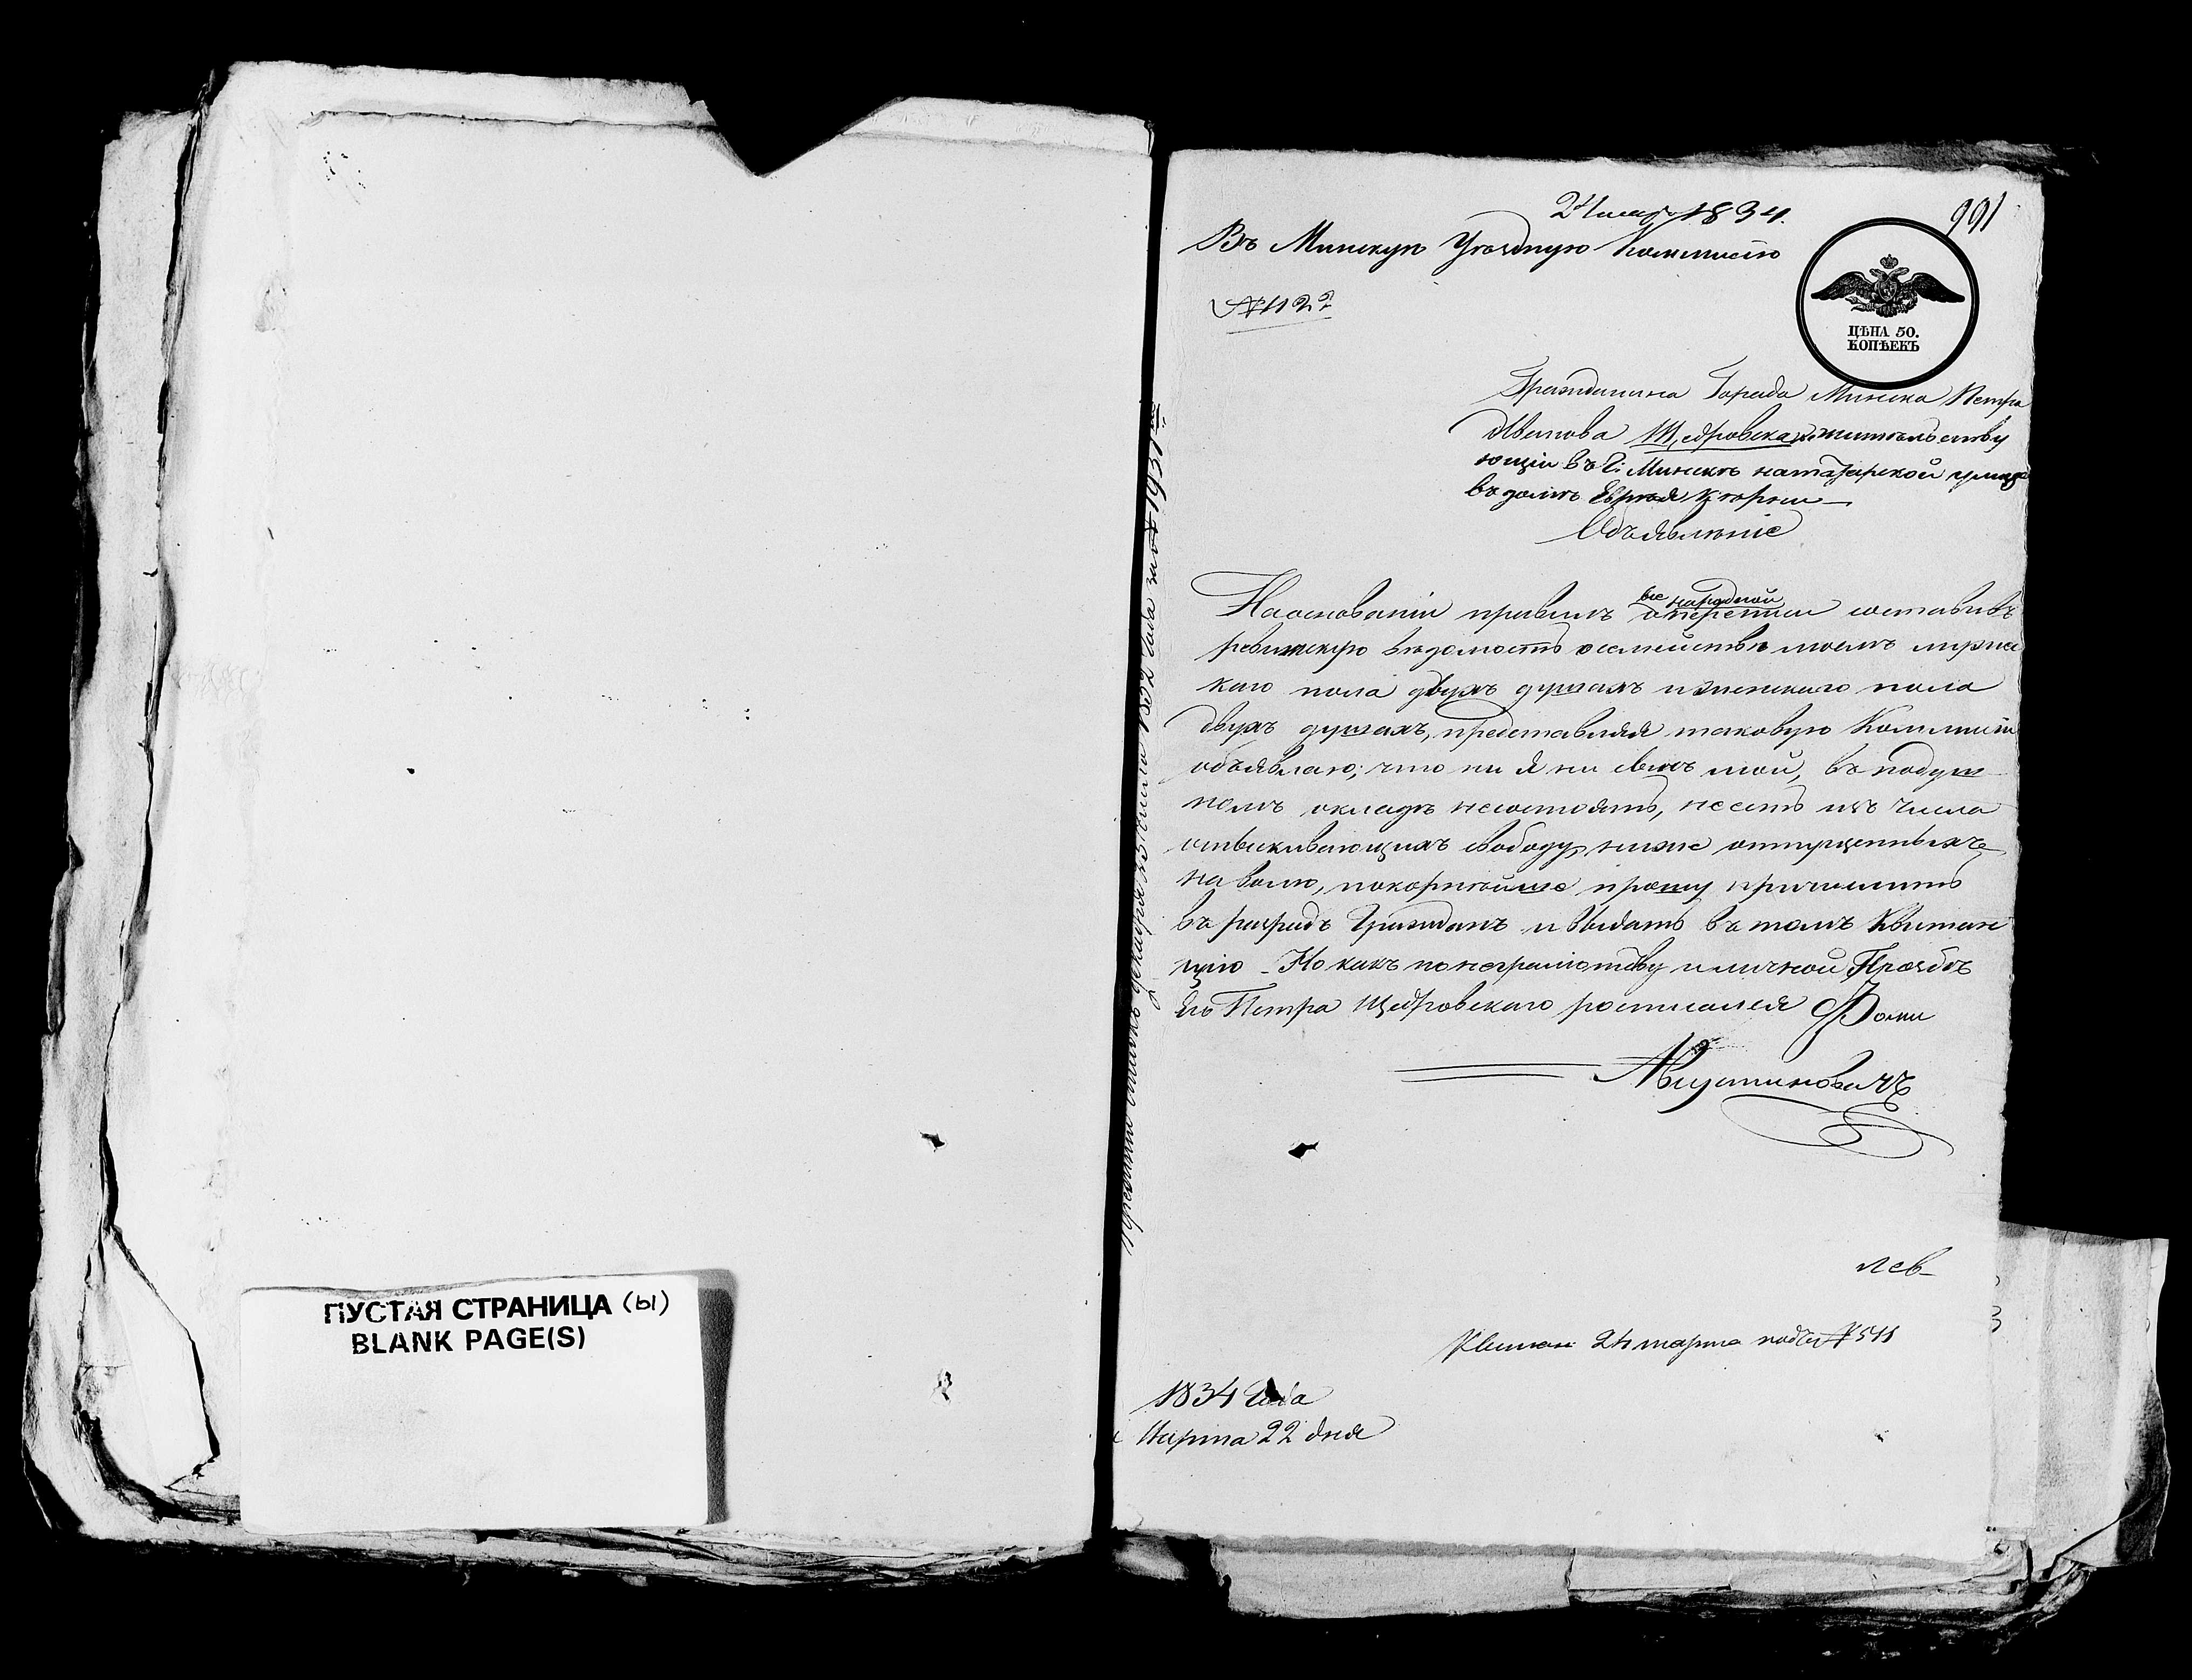 ПУСТАЯ СТРАНИЦА (ы)
BLANK PAGE(S)
1834.
991
Въ Минскую Уѣздную Коммисію
№ 1122
ЦѢНА 50.
КОПѢЕКЪ
Гражданина Города Минска Петра
Иванова Щедровскаго жительству
ющій въ Г: Минскѣ на татарской улицѣ
въ домѣ Еврея
Объявленіе
На основаніи правилъ
все народной
о переписи составивъ
ревижскую вѣдомость о семействѣ моемъ мужес
каго пола двухъ душахъ и женскаго пола
двухъ душахъ, представляя таковую Коммисіи
объявляю; что ни я ни сынъ мой, въ подуш
номъ окладѣ несостоятъ, не есть изъ числа
отыскивающихъ свободу, ниже отпущенныхъ
на волю, покорнѣйше прошу причислить
въ разрядъ Гражданъ и выдать въ томъ Квитан
цію - Но какъ по неграмотству и личной Прозбѣ
его Петра Щедровскаго росписался Фома
Августиновичъ
лев
Квитан 24 марта под № 511
1834 Года
Марта 22 дня